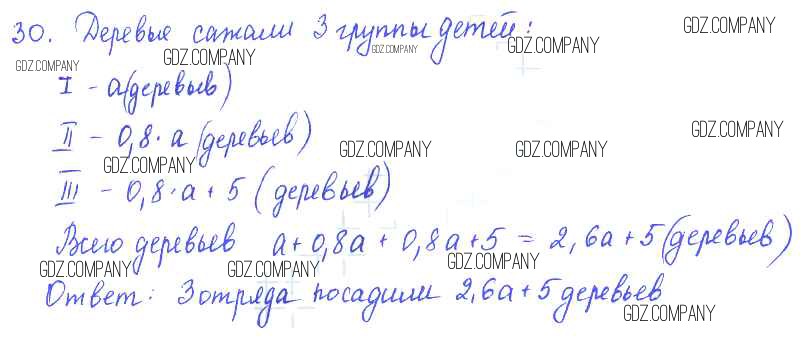 30. Деревья сажали 3 группы детей:
I - а (деревьев)
II - 0,8 · а (деревьев)
III - 0,8 · а + 5 (деревьев)
Всего деревьев а + 0,8а + 0,8а + 5 = 2,6а + 5 (деревьев)
Ответ: 3 отряда посадили 2,6а + 5 деревьев
GDZ.COMPANY
GDZ.COMPANY
GDZ.COMPANY
GDZ.COMPANY
GDZ.COMPANY
GDZ.COMPANY
GDZ.COMPANY
GDZ.COMPANY
GDZ.COMPANY
GDZ.COMPANY
GDZ.COMPANY
GDZ.COMPANY
GDZ.COMPANY
GDZ.COMPANY